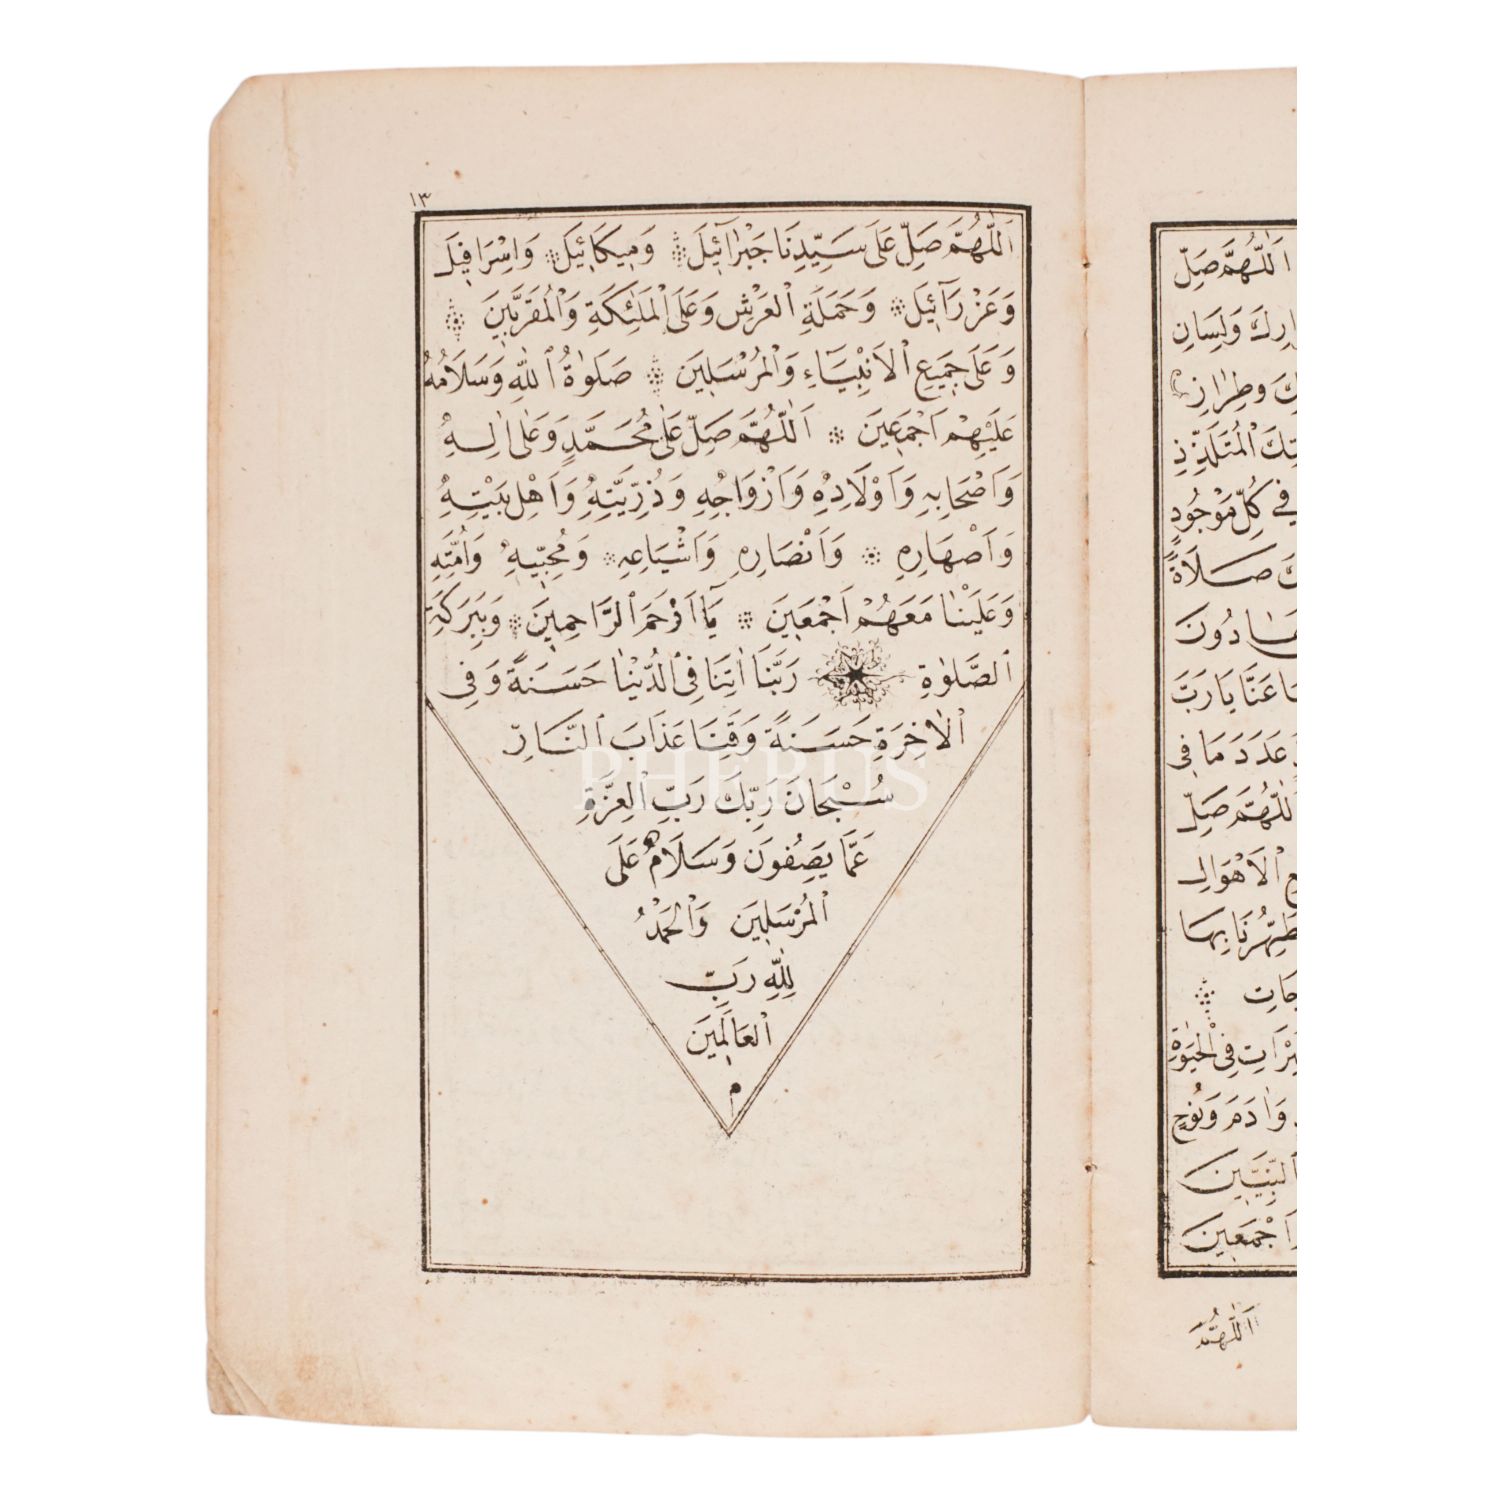 ١٣
اَللّٰهُمَّ صَلِّ عَلَى سَيِّدِنَا جَبْرَآئِيلَ وَمِيكَائِيلَ وَاِسْرَافِيلَ
وَعَزْرَآئِيلَ وَحَمَلَةِ الْعَرْشِ وَعَلَى الْمَلٰئِكَةِ وَالْمُقَرَّبِينَ
وَعَلَى جَمِيعِ الْاَنْبِيَآءِ وَالْمُرْسَلِينَ صَلَوٰةُ اللّٰهِ وَسَلَامُهُ
عَلَيْهِمْ اَجْمَعِينَ اَللّٰهُمَّ صَلِّ عَلٰى مُحَمَّدٍ وَعَلٰى اٰلِهِ
وَاَصْحَابِهِ وَاَوْلَادِهِ وَاَزْوَاجِهِ وَذُرِّيَّتِهِ وَاَهْلِ بَيْتِهِ
وَاَصْهَارِهِ وَاَنْصَارِهِ وَاَشْيَاعِهِ وَمُحِبِّيهِ وَاُمَّتِهِ
وَعَلَيْنَا مَعَهُمْ اَجْمَعِينَ يَآ اَرْحَمَ الرَّاحِمِينَ وَبِبَرَكَةِ
الصَّلٰوةِ رَبَّنَا اٰتِنَا فِي الدُّنْيَا حَسَنَةً وَفِي
الْاٰخِرَةِ حَسَنَةً وَقِنَا عَذَابَ النَّارِ
سُبْحَانَ رَبِّكَ رَبِّ الْعِزَّةِ
عَمَّا يَصِفُونَ وَسَلَامٌ عَلَى
الْمُرْسَلِينَ وَالْحَمْدُ
لِلّٰهِ رَبِّ
الْعَالَمِينَ
م
PHEBUS
اَللّٰهُمَّ صَلِّ
وَلِسَانِ
وَطِرَازِ
الْمُتَلَذِّذِ
فِي كُلِّ مَوْجُودٍ
صَلَاةً
عَنَّا يَا رَبَّ
عَدَدَ مَا فِي
اَللّٰهُمَّ صَلِّ
الْاَهْوَالِ
بِهَا
فِي الْحَيٰوةِ
وَاٰدَمَ وَنُوحٍ
النَّبِيِّينَ
اَجْمَعِينَ
اَللّٰهُمَّ